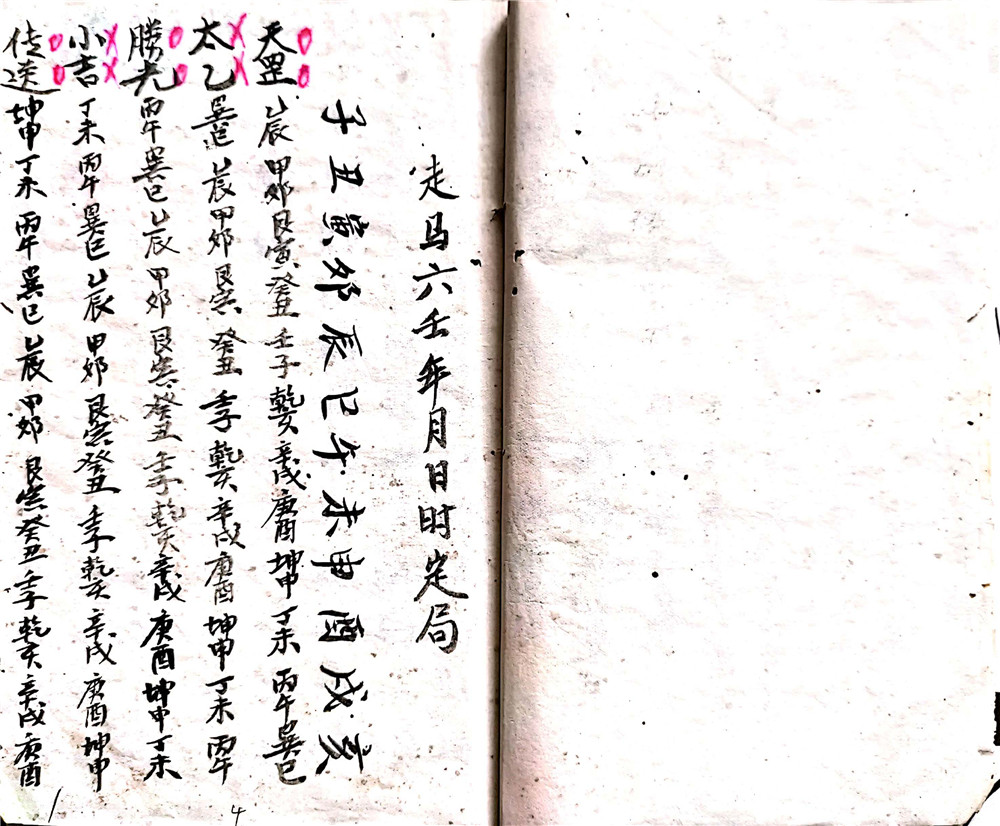 走马六壬年月日时定局
子丑寅卯辰巳午未申酉戌亥
天罡 乙辰 甲卯 艮寅 癸丑 壬子 乾亥 辛戌 庚酉 坤申 丁未 丙午 巽巳
太乙 巽巳 乙辰 甲卯 艮寅 癸丑 壬子 乾亥 辛戌 庚酉 坤申 丁未 丙午
勝光 丙午 巽巳 乙辰 甲卯 艮寅 癸丑 壬子 乾亥 辛戌 庚酉 坤申 丁未
小吉 丁未 丙午 巽巳 乙辰 甲卯 艮寅 癸丑 壬子 乾亥 辛戌 庚酉 坤申
传送 坤申 丁未 丙午 巽巳 乙辰 甲卯 艮寅 癸丑 壬子 乾亥 辛戌 庚酉
4